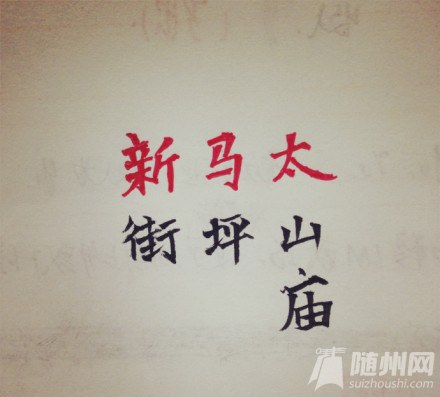 新街
马坪
太山庙
随州网
suizhoushi.com